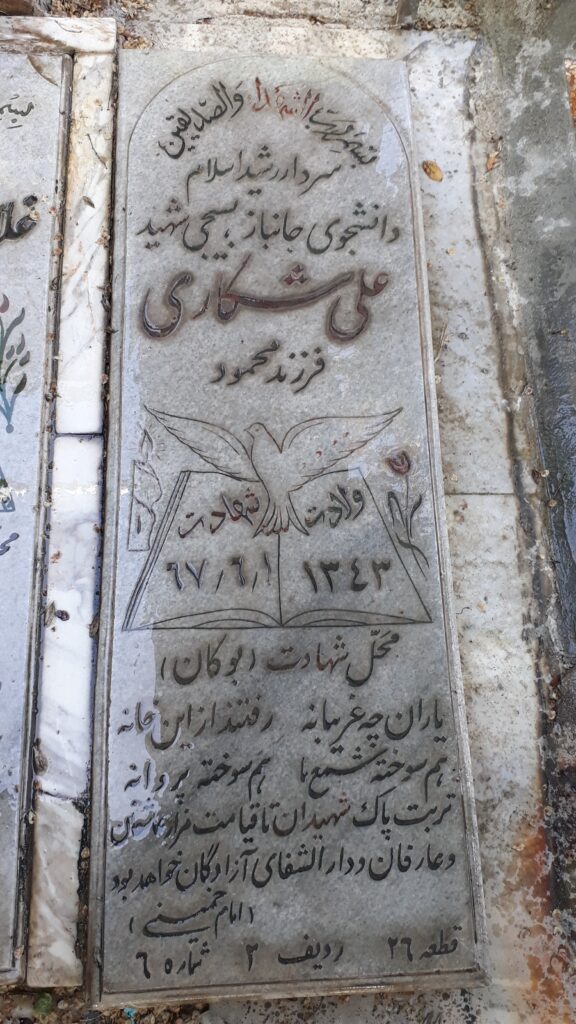 بسم رب الشهداء والصدیقین
سردار رشید اسلام
دانشجوی جانباز بسیجی شهید
علی شکاری
فرزند محمود
ولادت شهادت
۱۳۴۳ ۶۷/۶/۱
محل شهادت (بوکان)
یاران چه غریبانه رفتند از این خانه
هم سوخته شمع ما هم سوخته پروانه
تربت پاک شهیدان تا قیامت مزار عاشقان
و عارفان و دارالشفای آزادگان خواهد بود
(امام خمینی)
قطعه ۲۶ ردیف ۲ شماره ۶